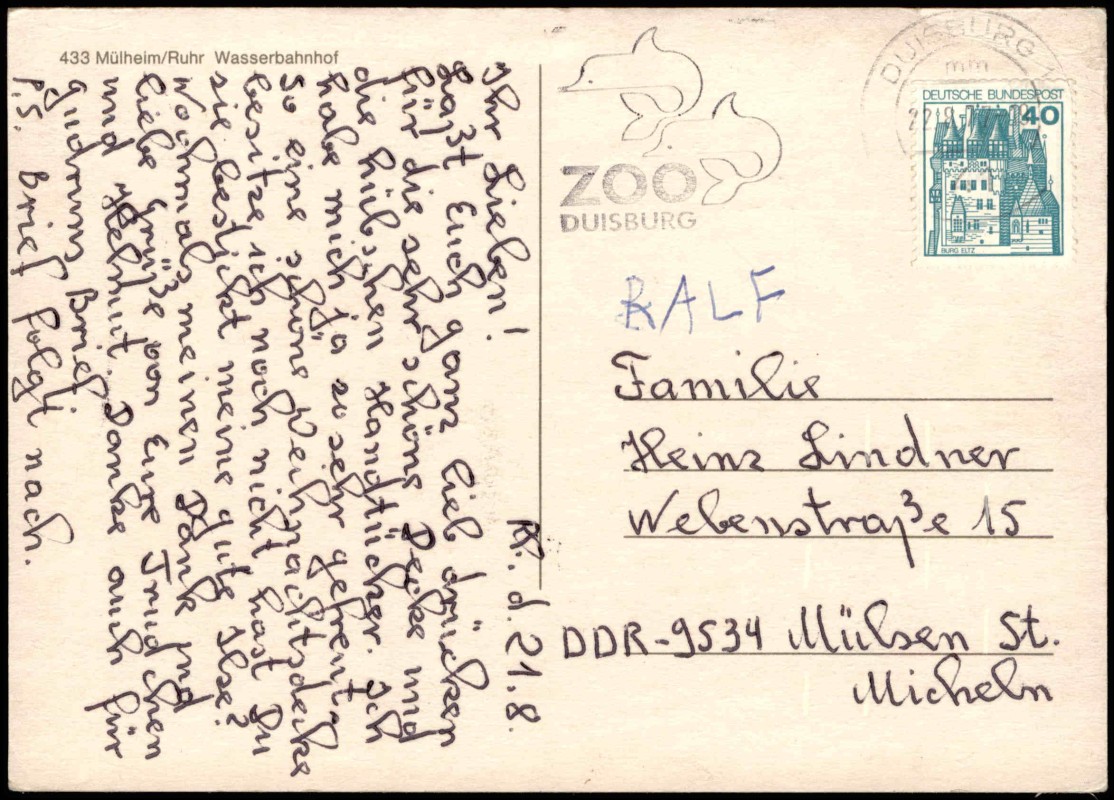 433 Mülheim/Ruhr Wasserbahnhof
d. 21.8.
Ihr Lieben!
Laßt Euch ganz lieb drücken
für die sehr schöne Decke und
die hübschen Handtücher. Ich
habe mich ja so sehr gefreut.
So eine schöne Weihnachtsdecke
besitze ich noch nicht, hast Du
sie bestickt meine gute Ilse?
Nochmals meinen Dank und
liebe Grüße von Eure Trudchen
und Helmut. Danke auch für
Gudruns Brief
P.S. Brief folgt nach.
ZOO
DUISBURG
DUISBURG
mm
DEUTSCHE BUNDESPOST
40
BURG ELTZ
RALF
Familie
Heinz Lindner
Webenstraße 15
DDR-9534 Mülsen St.
Micheln